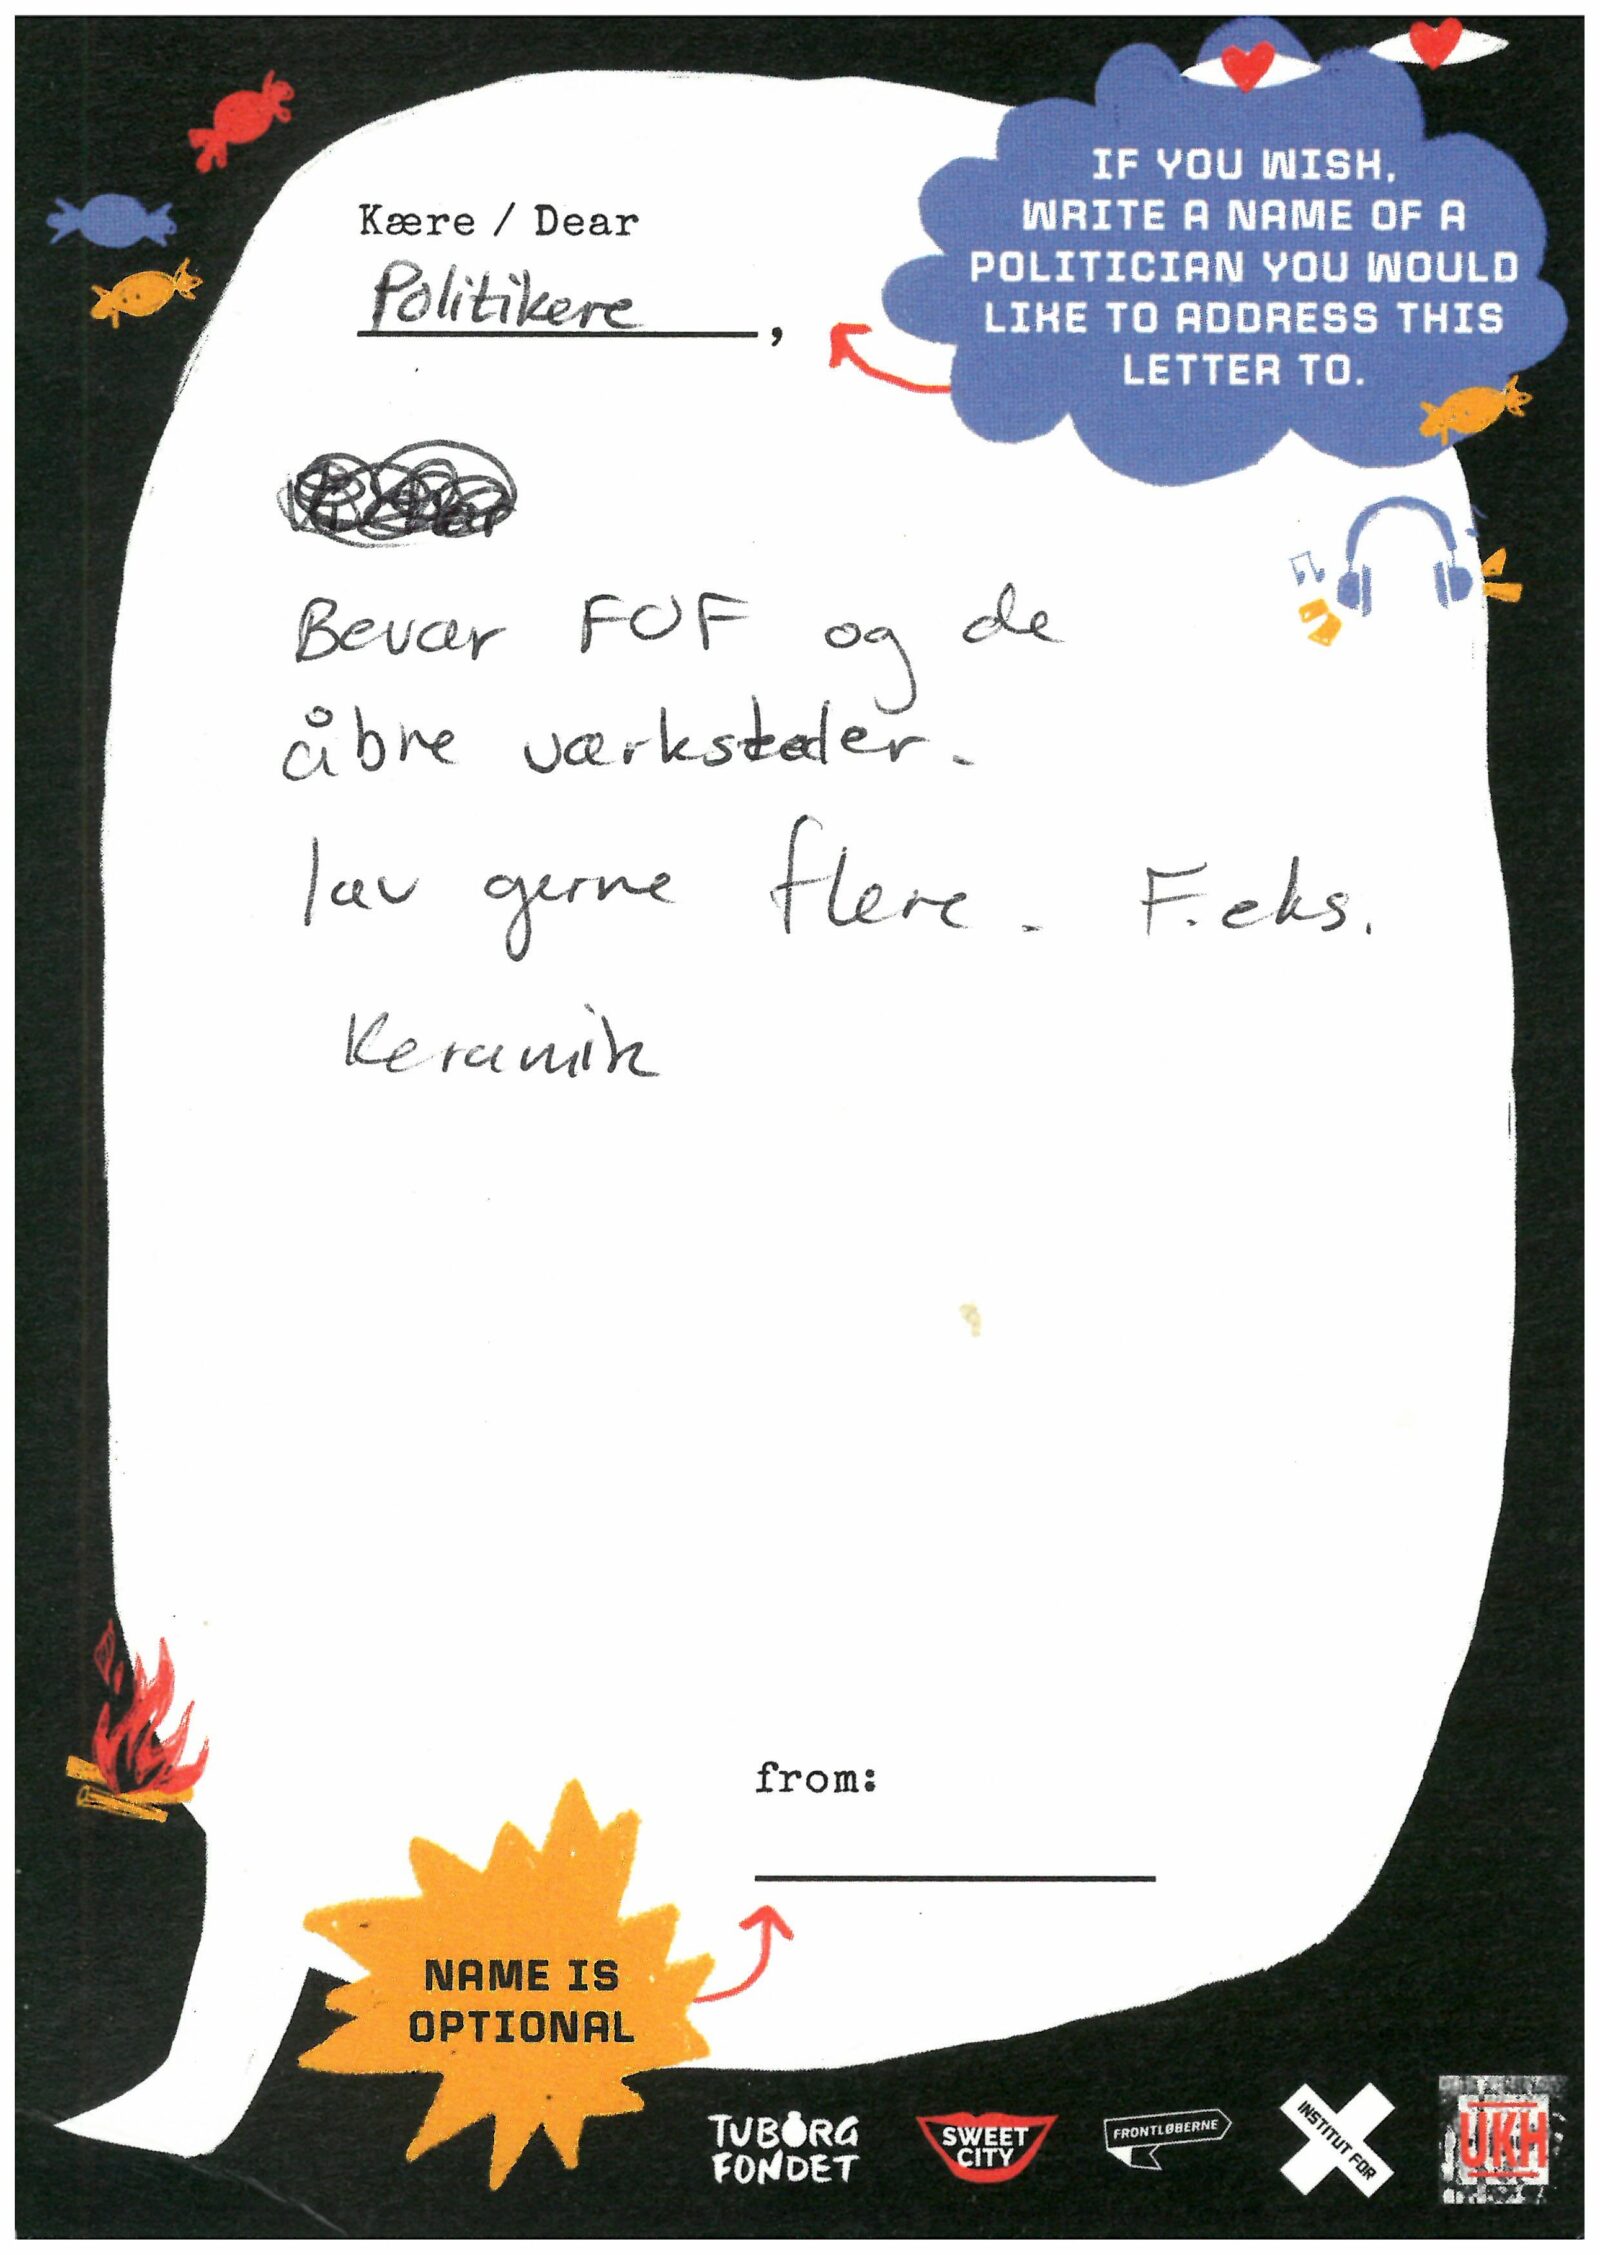 IF YOU WISH,
WRITE A NAME OF A
POLITICIAN YOU WOULD
LIKE TO ADDRESS THIS
LETTER TO.
Kære / Dear
Politikere,
Bevar FOF og de
åbne værksteder.
lav gerne flere. F.eks.
Keramik
from:
NAME IS
OPTIONAL
TUBORG
FONDET
SWEET
CITY
FRONTLØBERNE
INSTITUT FOR
UKH